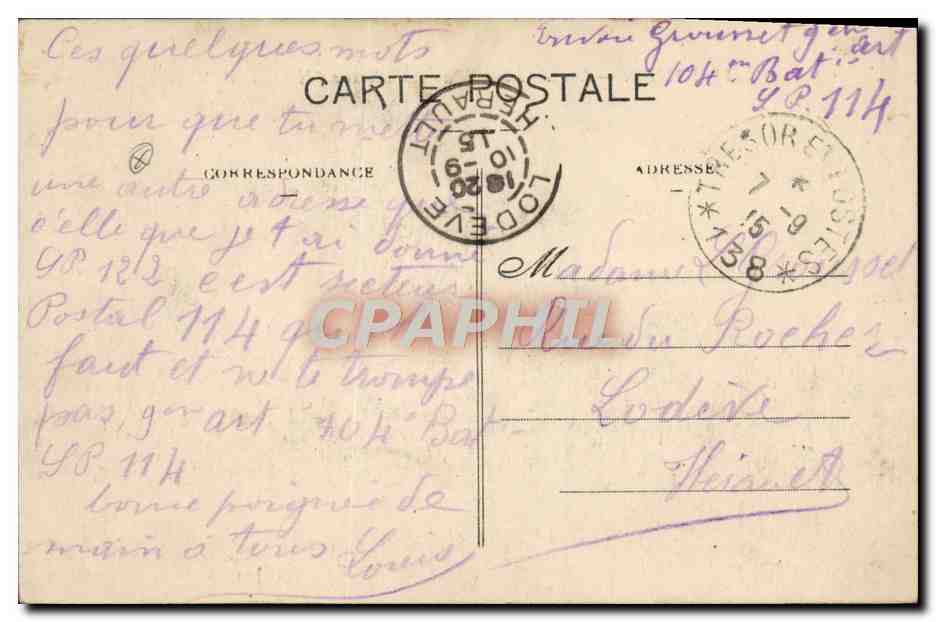 Ces quelques mots
pour que tu me
une autre adresse que
c'elle que je t'ai donné
SP. 122 c'est secteur
Postal 114 qu'il
faut et ne te trompe
pas, 9em art 104em Bat
SP. 114
bonne poignée de
main à tous Louis
Envoi Grousset 9em art
104em Bat
SP. 114
CARTE POSTALE
CORRESPONDANCE
ADRESSE
LODEVE
HERAULT
1820
10 -9
15
* TRESOR ET POSTES *
7 *
-9
15
138
Madame
Rue du Rocher
Lodève
Hérault
CPAPHIL